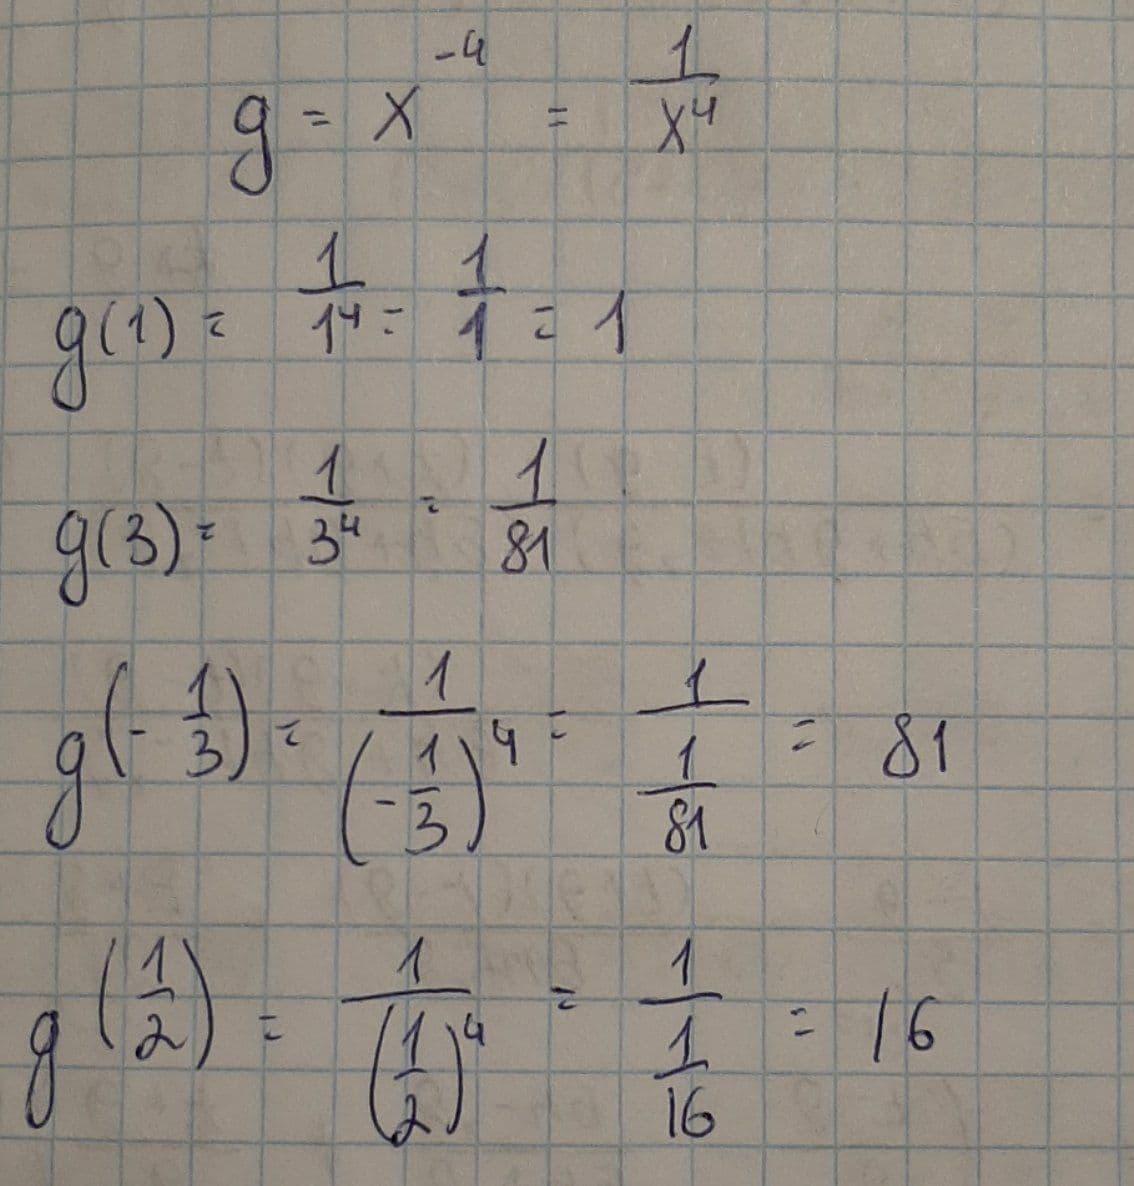 g = x^-4 = 1/x^4
g(1) = 1/1^4 = 1/1 = 1
g(3) = 1/3^4 = 1/81
g(-1/3) = 1/(-1/3)^4 = 1/(1/81) = 81
g(1/2) = 1/(1/2)^4 = 1/(1/16) = 16